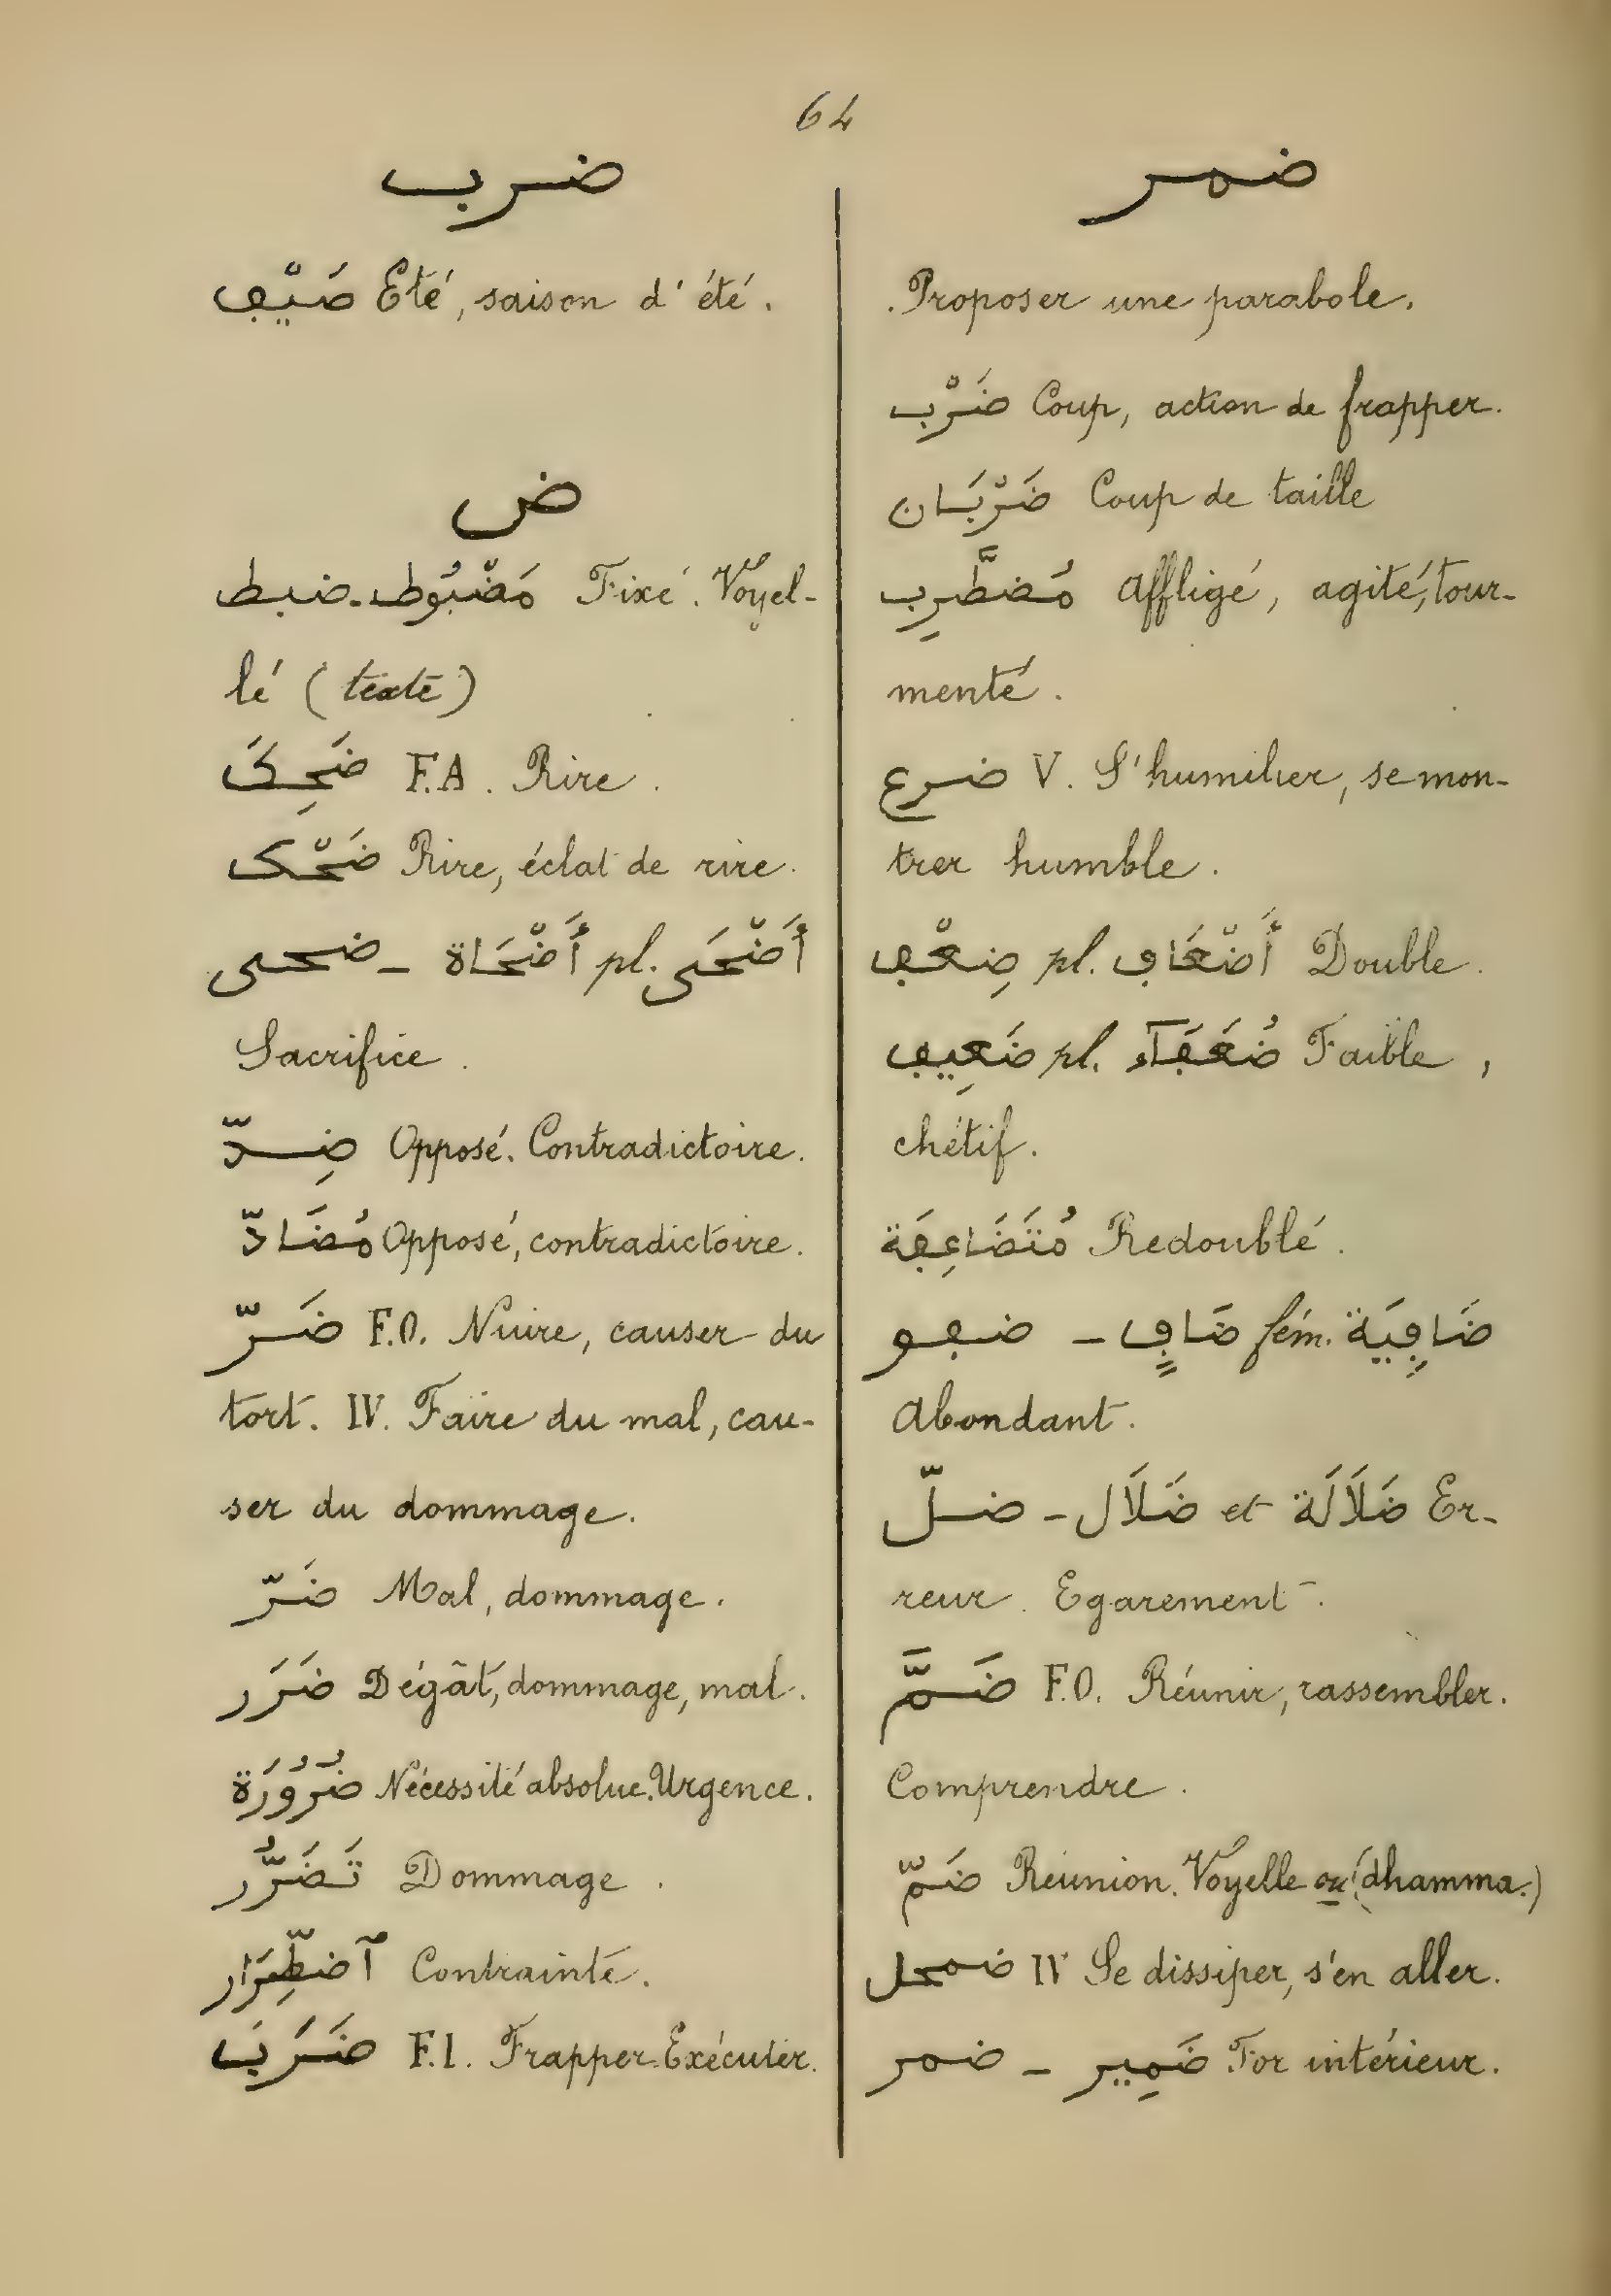 64
ضرب
ضمر
صَيْڢ Eté, saison d'été.
ض
ضبط - مَضْبُوط Fixé. Voyel-
lé (texte)
ضَحِكَ F.A. Rire.
ضَحْك Rire, éclat de rire.
ضحى - أَضْحَاة pl. أَضْحَى
Sacrifice.
ضِدّ Opposé. Contradictoire.
مُضَادّ Opposé, contradictoire.
ضَرّ F.O. Nuire, causer du
tort. IV. Faire du mal, cau-
ser du dommage.
ضَرّ Mal, dommage.
ضَرَر Dégât, dommage, mal.
ضُرُورَة Nécessité absolue. Urgence.
تَضَرُّر Dommage.
آضطِّرَار Contrainte.
ضَرَبَ F.I. Frapper. Exécuter.
Proposer une parabole.
ضَرْب Coup, action de frapper.
ضَرْبَان Coup de taille
مُضطَّرِب Affligé, agité, tour-
menté.
ضرع V. S'humilier, se mon-
trer humble.
ضِعْڢ pl. أَضْعَاڢ Double.
ضَعِيڢ pl. ضُعَڢَآء Faible,
chétif.
مُتَضَاعِڢَة Redoublé.
ضڢو - ضَاڢٍ fém. ضَاڢِيَة
Abondant.
ضلّ - ضَلَال et ضَلَالَة Er-
reur. Egarement.
ضَمَّ F.O. Réunir, rassembler.
Comprendre.
ضَمّ Réunion. Voyelle ou (dhamma.)
ضمحل IV Se dissiper, s'en aller.
ضمر - ضَمِير For intérieur.